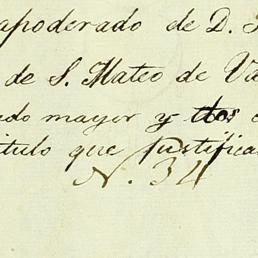 apoderado de D.
de S. Mateo de Va
do mayor y dos
itulo que justifica
N. 34